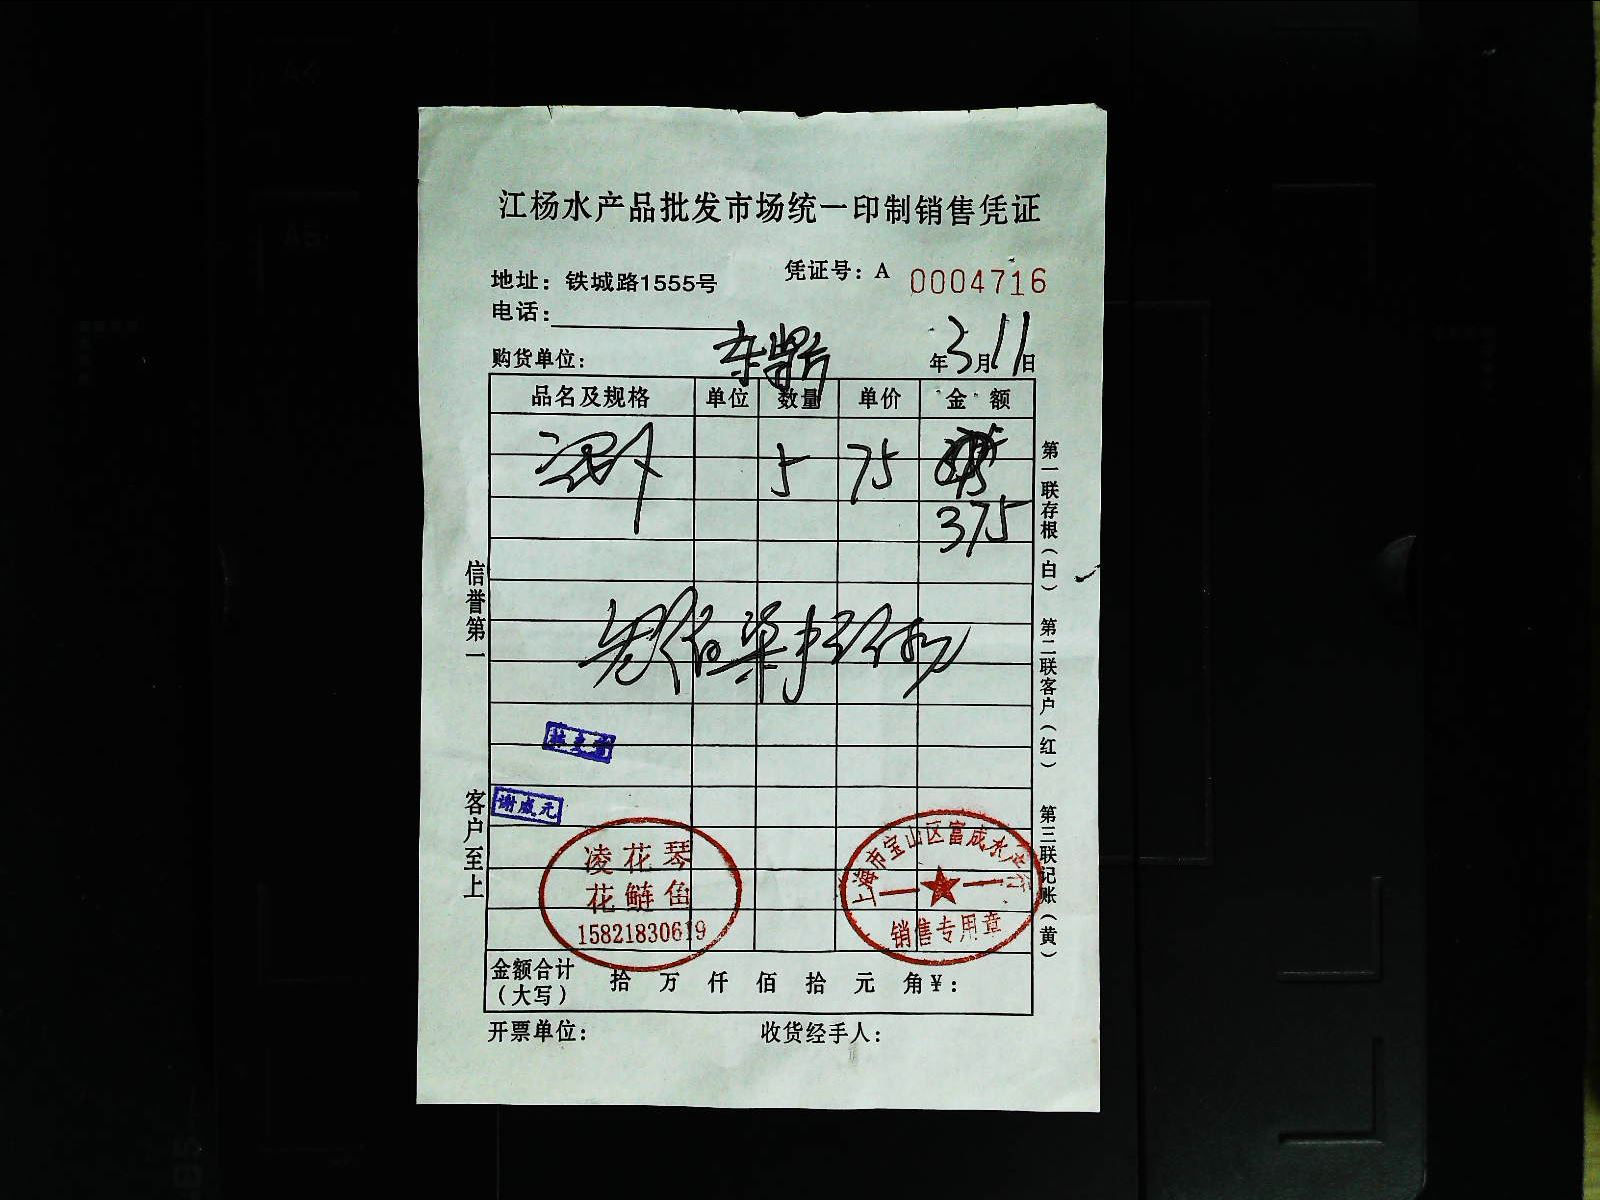 江杨水产品批发市场统一印制销售凭证
地址：铁城路1555号
凭证号：A 0004716
电话：
购货单位：
年3月11日
品名及规格 单位 数量 单价 金额
5 75
375
叁佰柒拾伍
信誉第一
客户至上
第一联存根（白） 第二联客户（红） 第三联记账（黄）
谢成元
凌花琴
花鲢鱼
15821830619
上海市宝山区富成水产行
销售专用章
金额合计（大写） 拾 万 仟 佰 拾 元 角 ¥：
开票单位： 收货经手人：